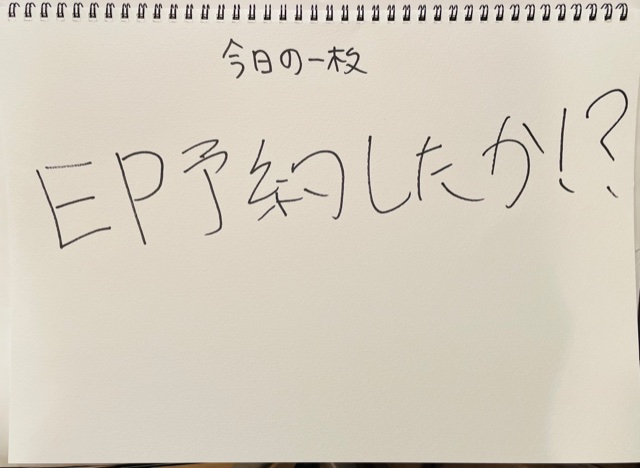 今日の一枚
EP予約したか!?